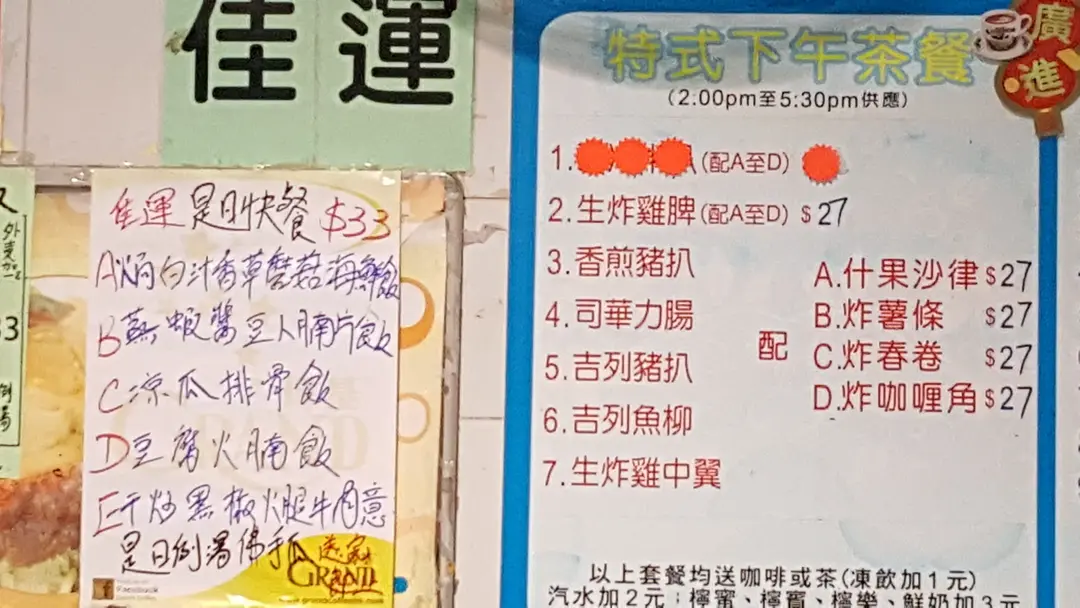 佳運
佳運 是日快餐 $33
A焗白汁香草蘑菇海鮮飯
B蒸蝦醬豆人腩片飯
C涼瓜排骨飯
D豆腐火腩飯
E干炒黑椒火腿牛肉意
是日例湯佛手瓜
GRAND
Facebook
外賣加
特式下午茶餐
(2:00pm至5:30pm供應)
1. (配A至D)
2.生炸雞脾(配A至D) $27
3.香煎豬扒
4.司華力腸
5.吉列豬扒
6.吉列魚柳
7.生炸雞中翼
配
A.什果沙律$27
B.炸薯條 $27
C.炸春卷 $27
D.炸咖喱角$27
以上套餐均送咖啡或茶(凍飲加1元)
汽水加2元;檸蜜、檸賓、檸樂、鮮奶加3元
廣進